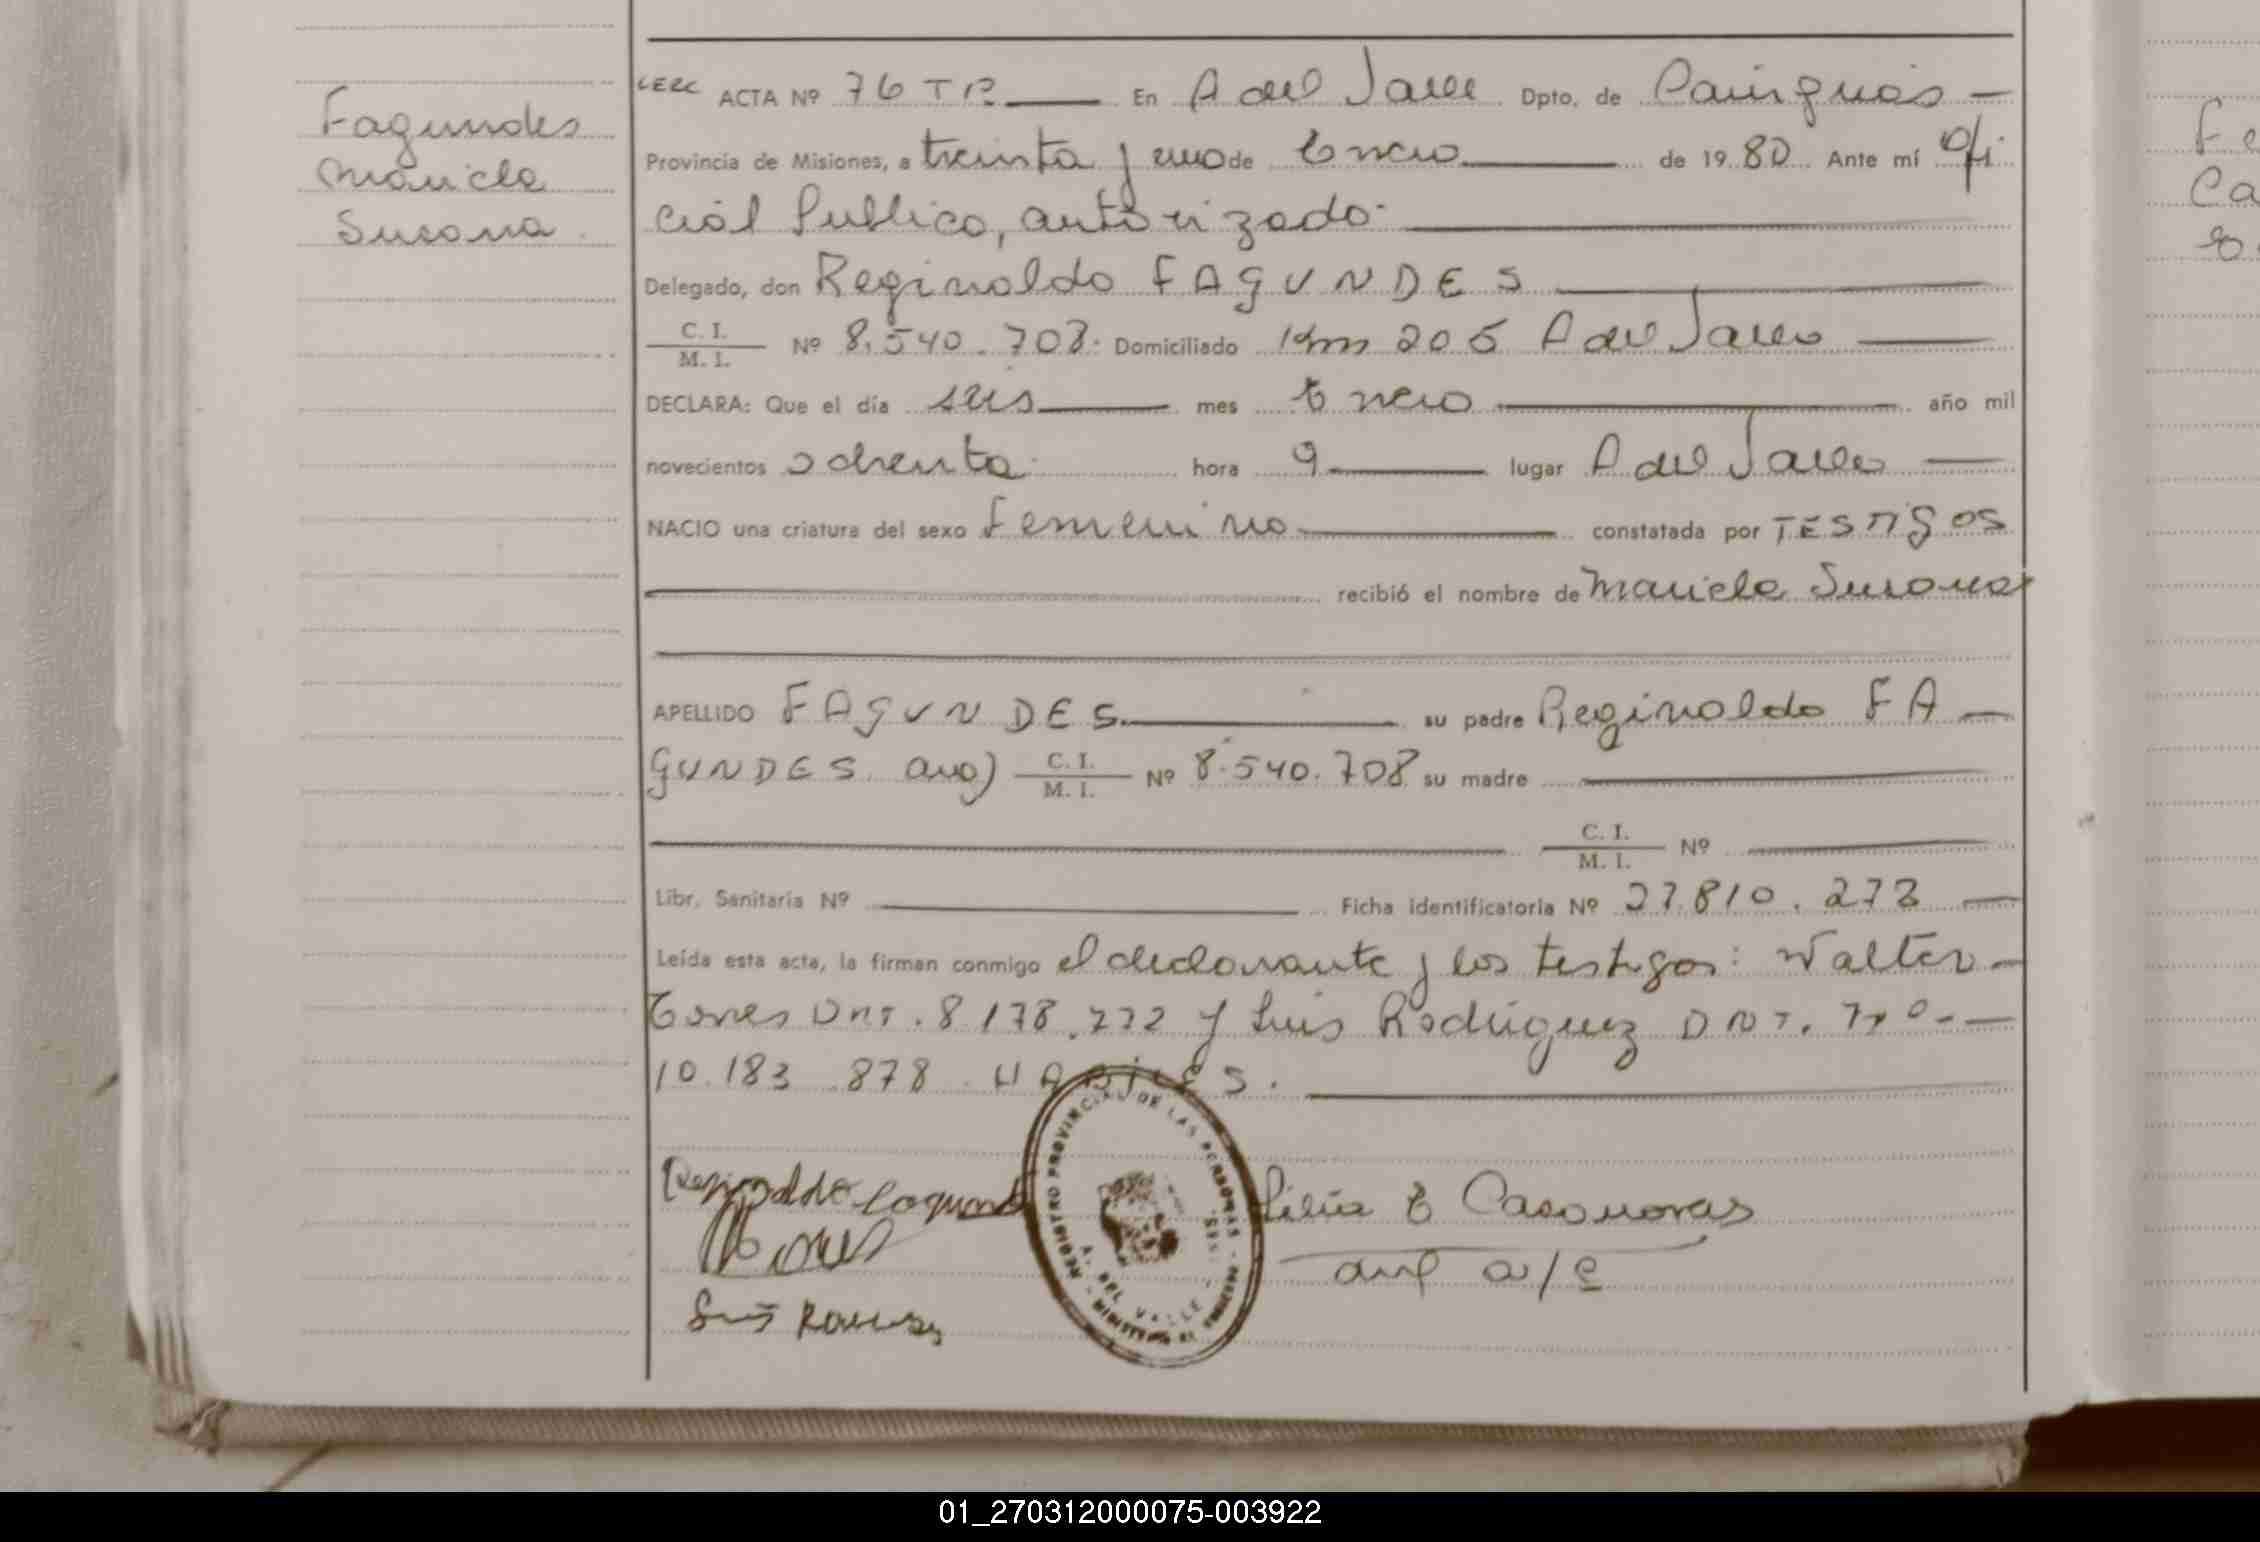 Fagundes
Mariela
Susana
ACTA Nº 76 TR En A del Valle Dpto. de Cainguás
Provincia de Misiones, a treinta y uno de Enero de 1980 Ante mí Ofi
cial Publico, autorizado
Delegado, don Reginaldo FAGUNDES
C. I.
M. I. Nº 8.540.708 Domiciliado Km 205 A del Valle
DECLARA: Que el día seis mes Enero año mil
novecientos ochenta hora 9 lugar A del Valle
NACIO una criatura del sexo Femenino constatada por TESTIGOS
recibió el nombre de Mariela Susana
APELLIDO FAGUNDES su padre Reginaldo FA
GUNDES arg) C. I.
M. I. Nº 8.540.708 su madre
C. I.
M. I. Nº
Libr. Sanitaria Nº Ficha identificatoria Nº 27.810.273
Leída esta acta, la firman conmigo el declarante y los testigos: Walter
Torres DNI. 8.178.272 y Luis Rodriguez DNI.
10.183.878 HABILES.
Reginaldo Fagundes
Torres
Luis
Lilia E Casanovas
a/c
REGISTRO PROVINCIAL DE LAS PERSONAS
A. DEL VALLE
MISIONES
01_270312000075-003922